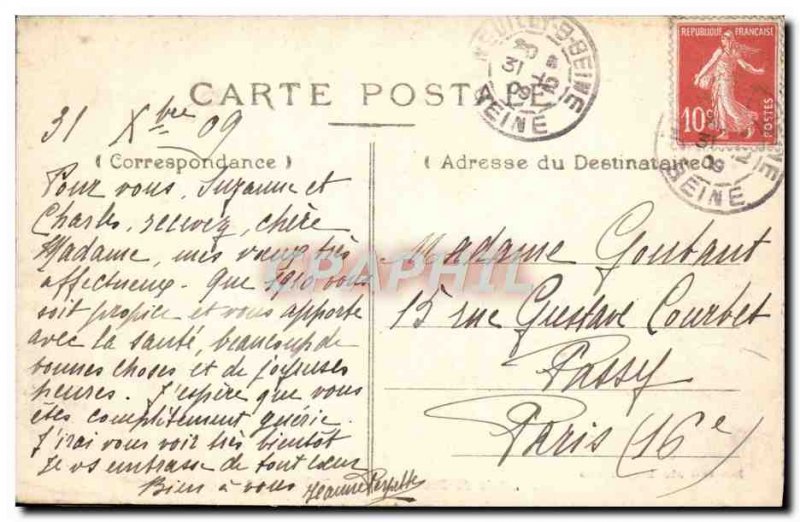 CARTE POSTALE
31 Xbre 09
( Correspondance )
Pour vous, Suzanne et
Charles, recevez, chère
Madame, mes vœux très
affectueux. Que 1910 vous
soit propice et vous apporte
avec la santé, beaucoup de
bonnes choses et de joyeuses
heures. J'espère que vous
êtes complètement guérie.
J'irai vous voir très bientôt
Je vs embrasse de tout cœur
Bien à vous Jeanne
( Adresse du Destinataire )
Madame Goutant
15 rue Gustave Courbet
Passy
Paris (16e)
REPUBLIQUE FRANÇAISE
10c
POSTES
NEUILLY-S-SEINE
31
09
SEINE
SEINE
CPAPHIL